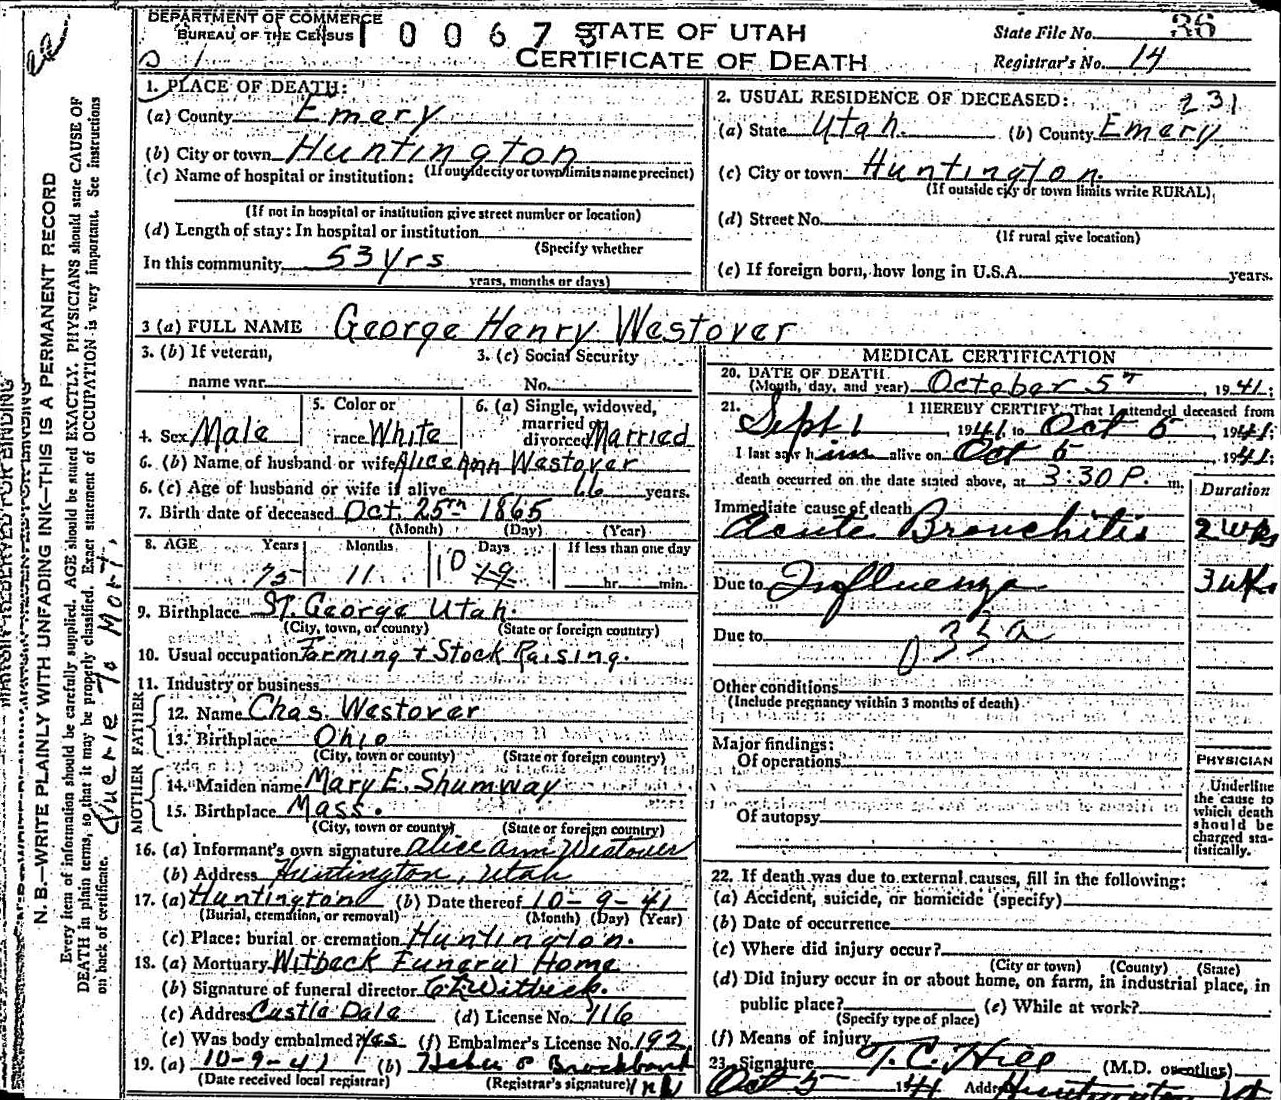 DEPARTMENT OF COMMERCE
BUREAU OF THE CENSUS
STATE OF UTAH
CERTIFICATE OF DEATH
State File No. 36
Registrar's No. 14
1. PLACE OF DEATH:
(a) County Emery
(b) City or town Huntington
(If outside city or town limits name precinct)
(c) Name of hospital or institution:
(If not in hospital or institution give street number or location)
(d) Length of stay: In hospital or institution
(Specify whether
In this community 53 yrs
years, months or days)
2. USUAL RESIDENCE OF DECEASED: 231
(a) State Utah. (b) County Emery
(c) City or town Huntington.
(If outside city or town limits write RURAL)
(d) Street No.
(If rural give location)
(e) If foreign born, how long in U.S.A. years.
3 (a) FULL NAME George Henry Westover
3. (b) If veteran,
name war
3. (c) Social Security
No.
4. Sex Male
5. Color or
race White
6. (a) Single, widowed,
married or
divorced Married
6. (b) Name of husband or wife Alice Ann Westover
6. (c) Age of husband or wife if alive 66 years.
7. Birth date of deceased Oct. 25th 1865
(Month) (Day) (Year)
8. AGE Years Months Days If less than one day
75 11 10 19 hr. min.
9. Birthplace St. George Utah.
(City, town, or county) (State or foreign country)
10. Usual occupation Farming + Stock Raising.
11. Industry or business
FATHER
12. Name Chas. Westover
13. Birthplace Ohio
(City, town or county) (State or foreign country)
MOTHER
14. Maiden name Mary E. Shumway
15. Birthplace Mass.
(City, town or county) (State or foreign country)
16. (a) Informant's own signature Alice Ann Westover
(b) Address Huntington, Utah
17. (a) Huntington (b) Date thereof 10-9-41
(Burial, cremation, or removal) (Month) (Day) (Year)
(c) Place: burial or cremation Huntington.
18. (a) Mortuary Witbeck Funeral Home
(b) Signature of funeral director
(c) Address Castle Dale (d) License No. 116
(e) Was body embalmed? Yes (f) Embalmer's License No. 192
19. (a) 10-9-41 (b)
(Date received local registrar) (Registrar's signature)
MEDICAL CERTIFICATION
20. DATE OF DEATH
(Month, day, and year) October 5th 1941;
21. I HEREBY CERTIFY, That I attended deceased from
Sept 1 1941 to Oct 5 1941;
I last saw him alive on Oct 5 1941;
death occurred on the date stated above, at 3:30 P. m.
Duration
Immediate cause of death
Acute Bronchitis 2 wks
Due to Influenza 3 wks
Due to 033a
Other conditions
(Include pregnancy within 3 months of death)
Major findings:
Of operations
Of autopsy
PHYSICIAN
Underline
the cause to
which death
should be
charged sta-
tistically.
22. If death was due to external causes, fill in the following:
(a) Accident, suicide, or homicide (specify)
(b) Date of occurrence
(c) Where did injury occur?
(City or town) (County) (State)
(d) Did injury occur in or about home, on farm, in industrial place, in
public place? (e) While at work?
(Specify type of place)
(f) Means of injury
23. Signature T. C. Hill (M.D. or other)
Oct 5 1941 Address Huntington Ut
N.B.—WRITE PLAINLY WITH UNFADING INK—THIS IS A PERMANENT RECORD
Every item of information should be carefully supplied. AGE should be stated EXACTLY. PHYSICIANS should state CAUSE OF
DEATH in plain terms, so that it may be properly classified. Exact statement of OCCUPATION is very important. See instructions
on back of certificate. Querie to Mort.